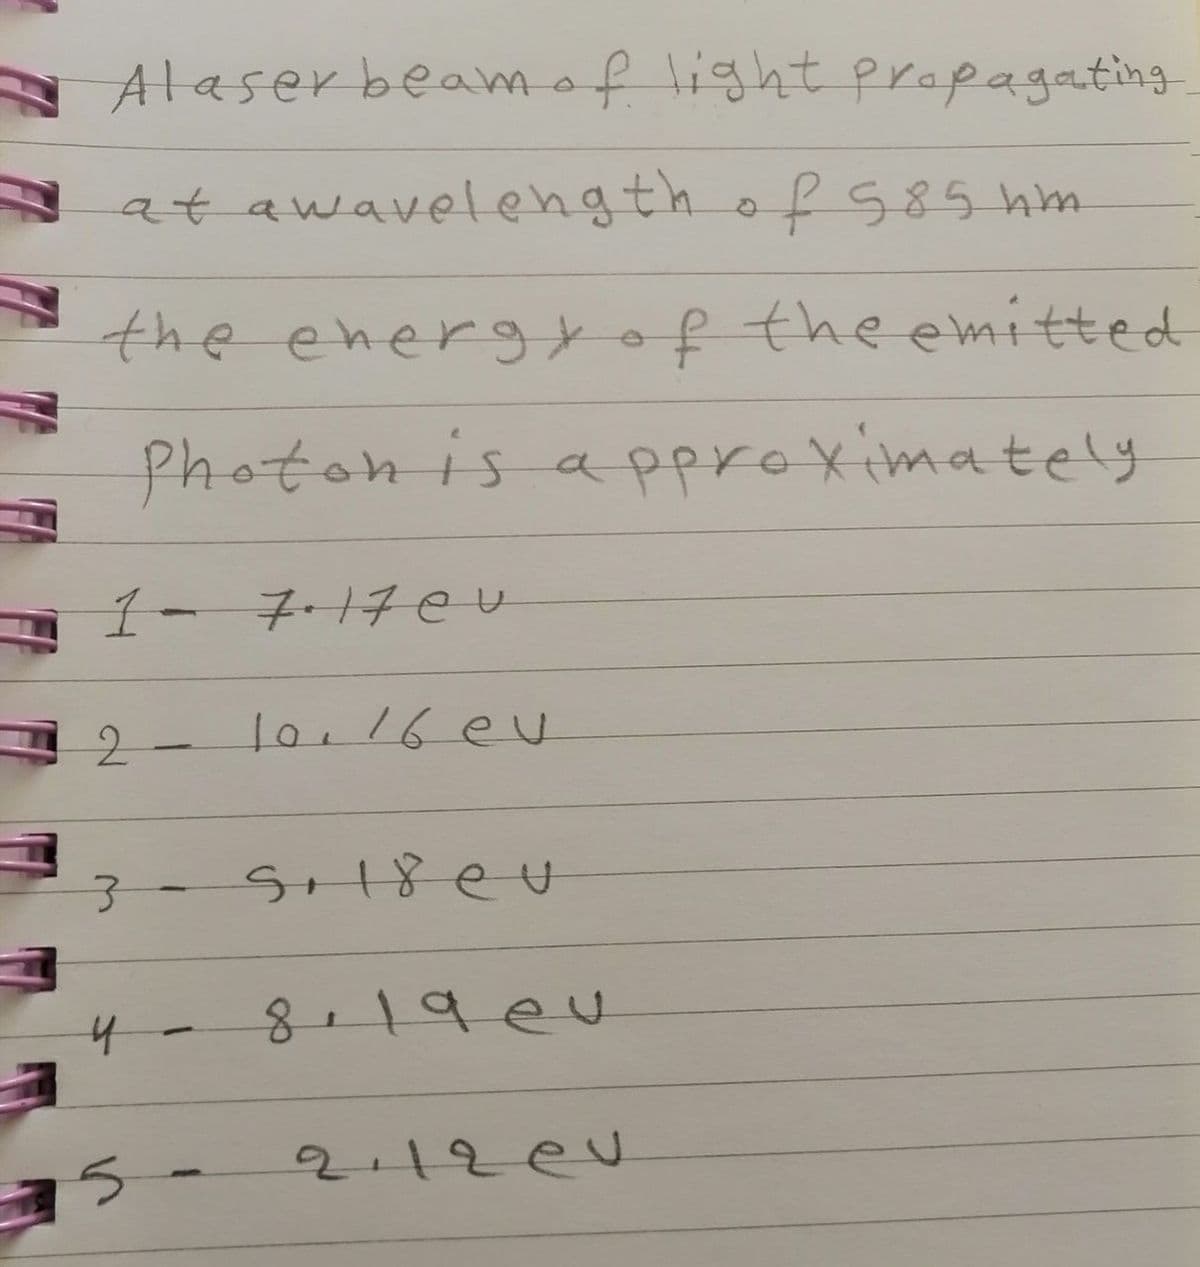 A laser beam of light propagating
at a wavelength of 585 nm
the energy of the emitted
Photon is approximately
1- 7.17 ev
2- 10.16 ev
3- 5.18 ev
4- 8.19 ev
5- 2.12 ev